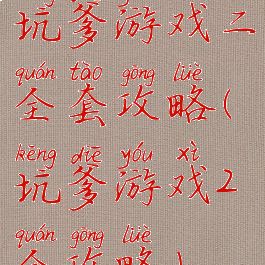 坑爹游戏二
quán tào gōng lüè
全套攻略(
kēng diē yóu xì
坑爹游戏2
quán gōng lüè
全攻略)